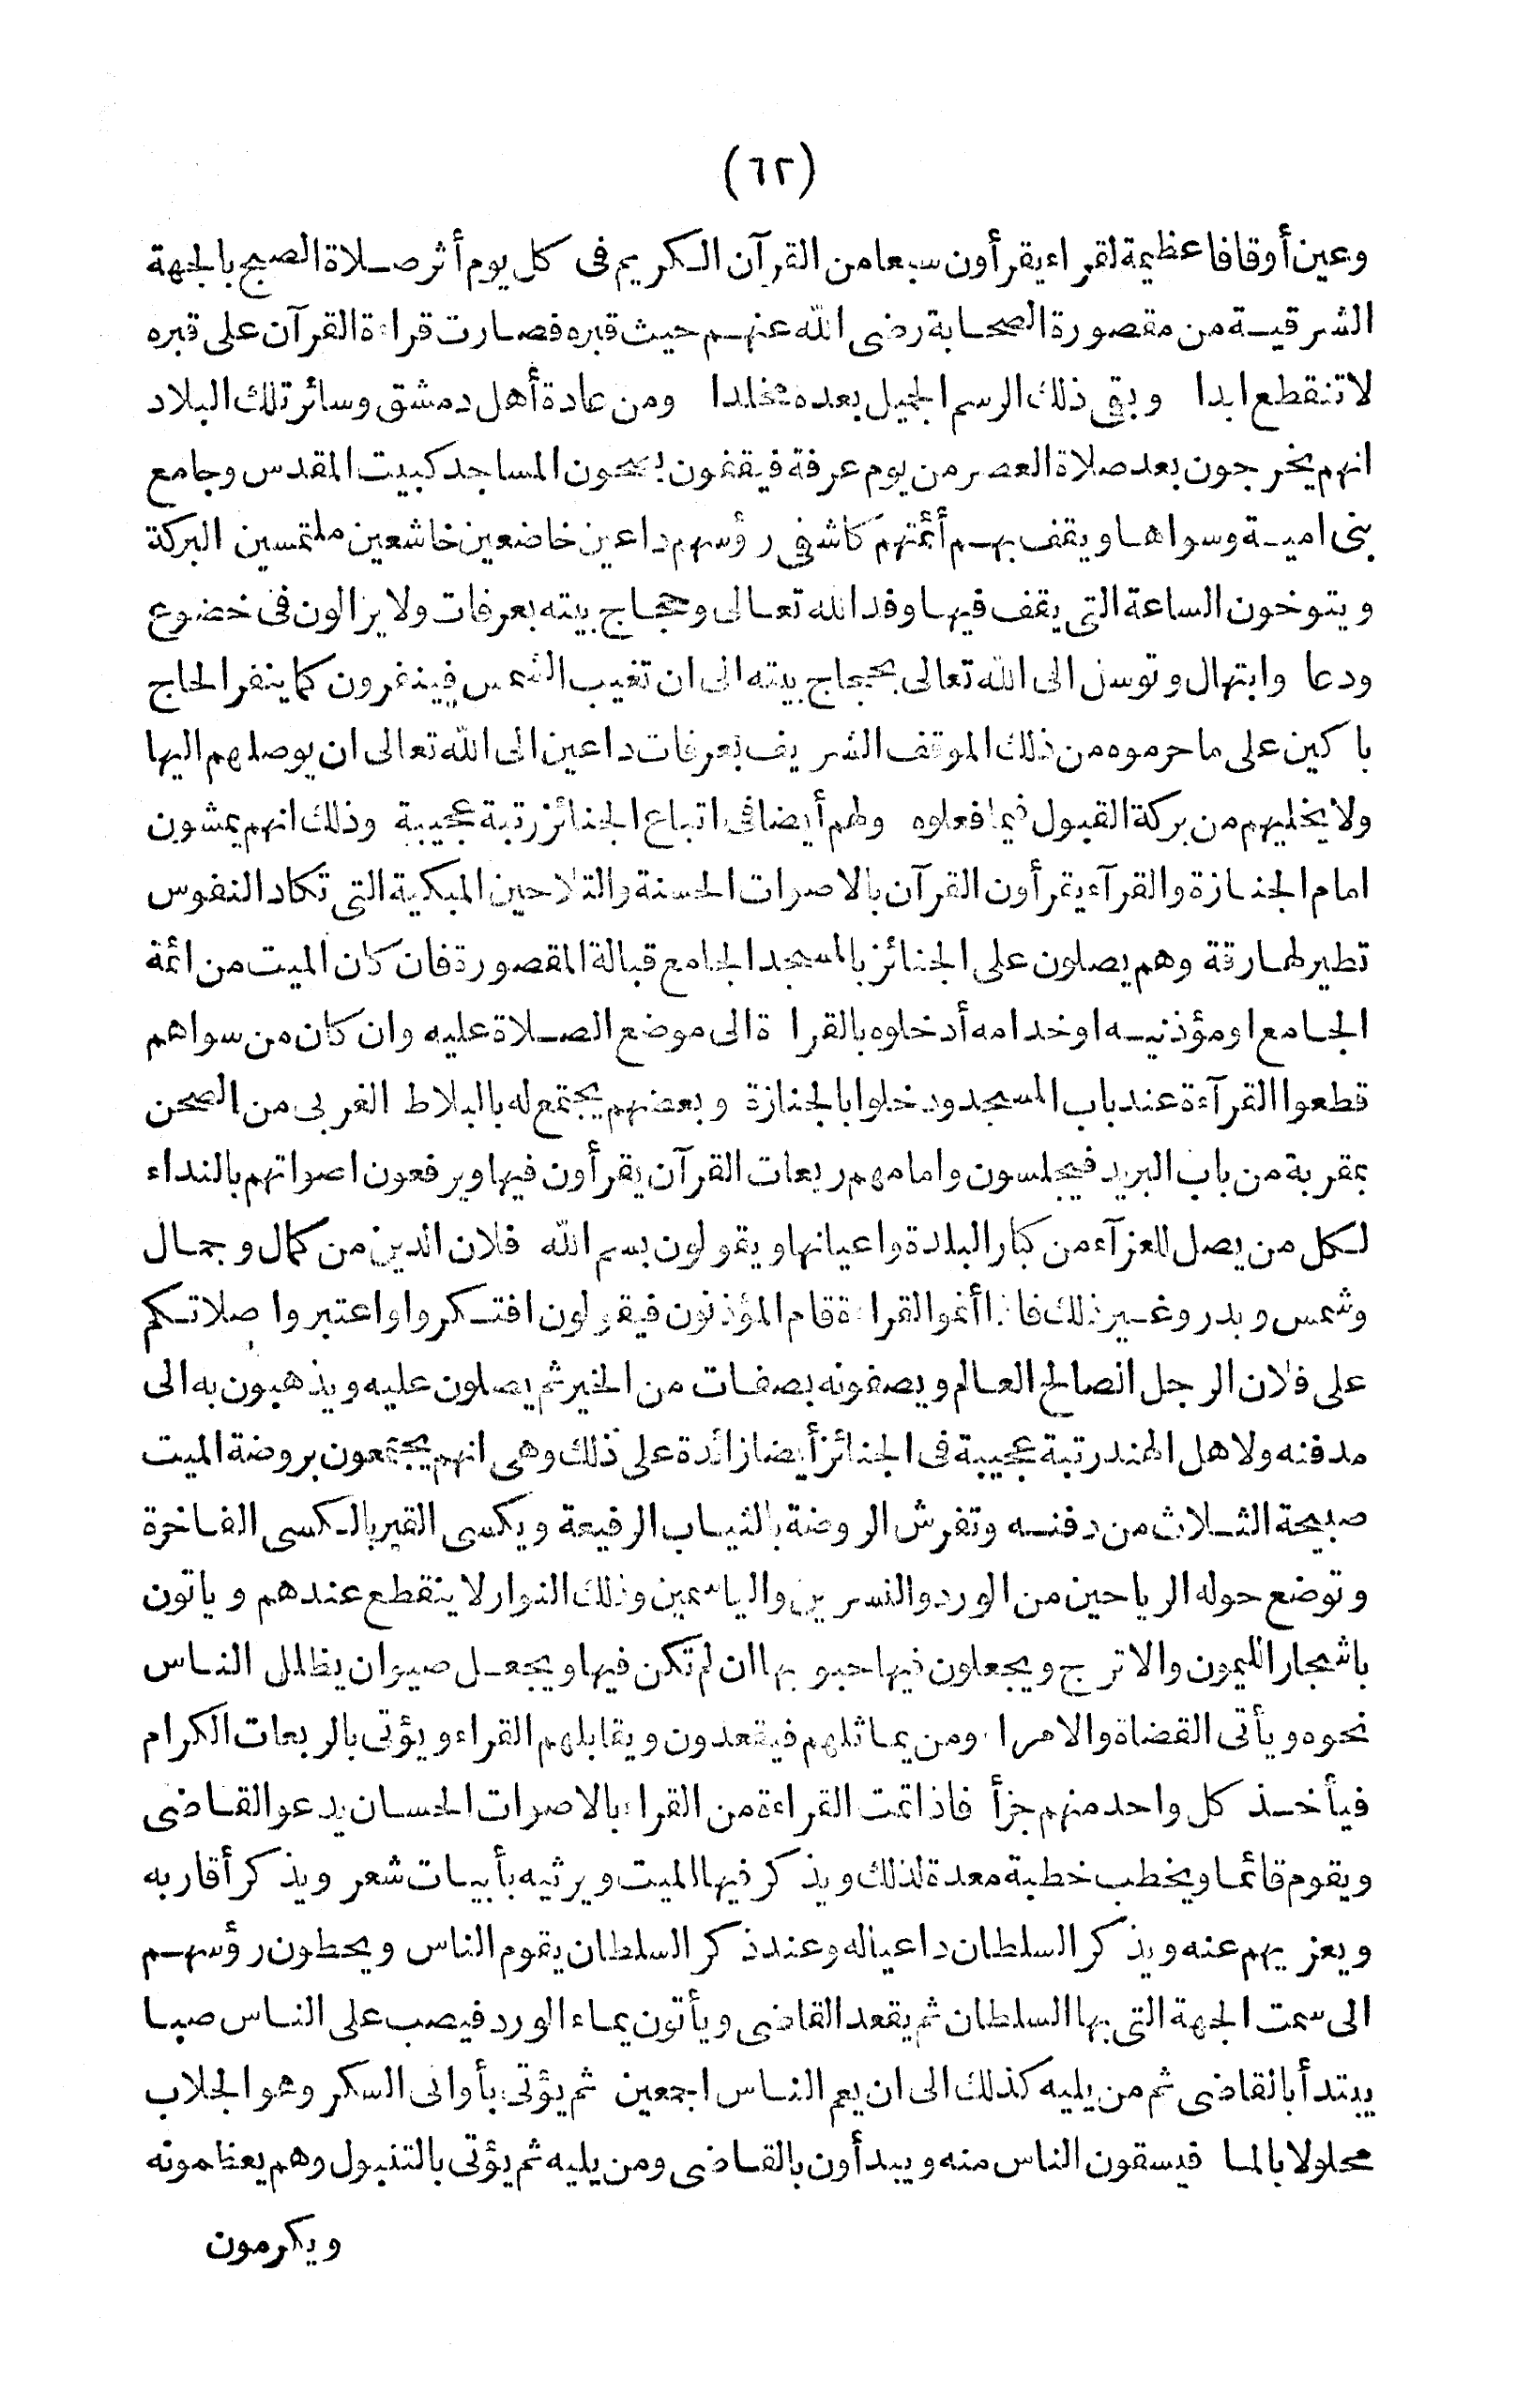 (٦٢)
وعين أوقافا عظيمة لقراء يقرأون سبعا من القرآن الكريم فى كل يوم أثر صلاة الصبح بالجهة
الشرقية من مقصورة الصحابة رضى الله عنهم حيث قبره فصارت قراءة القرآن على قبره
لا تنقطع ابدا وبقى ذلك الرسم الجميل بعده مخلدا ومن عادة أهل دمشق وسائر تلك البلاد
انهم يخرجون بعد صلاة العصر من يوم عرفة فيقفون بصحون المساجد كبيت المقدس وجامع
بنى امية وسواها ويقف بهم أئمتهم كاشفى رؤسهم داعين خاضعين خاشعين ملتمسين البركة
ويتوخون الساعة التى يقف فيها وفد الله تعالى وحجاج بيته بعرفات ولا يزالون فى خضوع
ودعا وابتهال وتوسل الى الله تعالى بحجاج بيته الى ان تغيب الشمس فينفرون كما ينفر الحاج
باكين على ما حرموه من ذلك الموقف الشريف بعرفات داعين الى الله تعالى ان يوصلهم اليها
ولا يخليهم من بركة القبول فيما فعلوه ولهم أيضا فى اتباع الجنائز رتبة عجيبة وذلك انهم يمشون
امام الجنازة والقرآء يقرأون القرآن بالاصوات الحسنة والتلاحين المبكية التى تكاد النفوس
تطير لها رقة وهم يصلون على الجنائز بالمسجد الجامع قبالة المقصورة فان كان الميت من ائمة
الجامع او مؤذنيه او خدامه أدخلوه بالقرا ة الى موضع الصلاة عليه وان كان من سواهم
قطعوا القرآءة عند باب المسجد ودخلوا بالجنازة وبعضهم يجتمع له بالبلاط الغربى من الصحن
بمقربة من باب البريد فيجلسون وامامهم ربعات القرآن يقرأون فيها ويرفعون اصواتهم بالنداء
لكل من يصل للعزآء من كبار البلدة واعيانها ويقولون بسم الله فلان الدين من كمال وجمال
وشمس وبدر وغير ذلك فاذا أتموا القراءة قام المؤذنون فيقولون افتكروا واعتبروا صلاتكم
على فلان الرجل الصالح العالم ويصفونه بصفات من الخير ثم يصلون عليه ويذهبون به الى
مدفنه ولاهل الهند رتبة عجيبة فى الجنائز أيضا زائدة على ذلك وهى انهم يجتمعون بروضة الميت
صبيحة الثلاث من دفنه وتفرش الروضة بالثياب الرفيعة ويكسى القبر بالكسى الفاخرة
وتوضع حوله الرياحين من الورد والنسرين والياسمين وذلك النوار لا ينقطع عندهم وياتون
باشجار الليمون والاترج ويجعلون فيها حبوبها ان لم تكن فيها ويجعل صيوان يظلل الناس
نحوه ويأتى القضاة والامراء ومن يماثلهم فيقعدون ويقابلهم القراء ويؤتى بالربعات الكرام
فيأخذ كل واحد منهم جزأ فاذا تمت القراءة من القراء بالاصوات الحسان يدعو القاضى
ويقوم قائما ويخطب خطبة معدة لذلك ويذكر فيها الميت ويرثيه بأبيات شعر ويذكر أقاربه
ويعزيهم عنه ويذكر السلطان داعيا له وعند ذكر السلطان يقوم الناس ويحطون رؤسهم
الى سمت الجهة التى بها السلطان ثم يقعد القاضى ويأتون بماء الورد فيصب على الناس صبا
يبتدأ بالقاضى ثم من يليه كذلك الى ان يعم الناس اجمعين ثم يؤتى بأوانى السكر وهو الجلاب
محلولا بالما فيسقون الناس منه ويبدأون بالقاضى ومن يليه ثم يؤتى بالتنبول وهم يعظمونه
ويكرمون